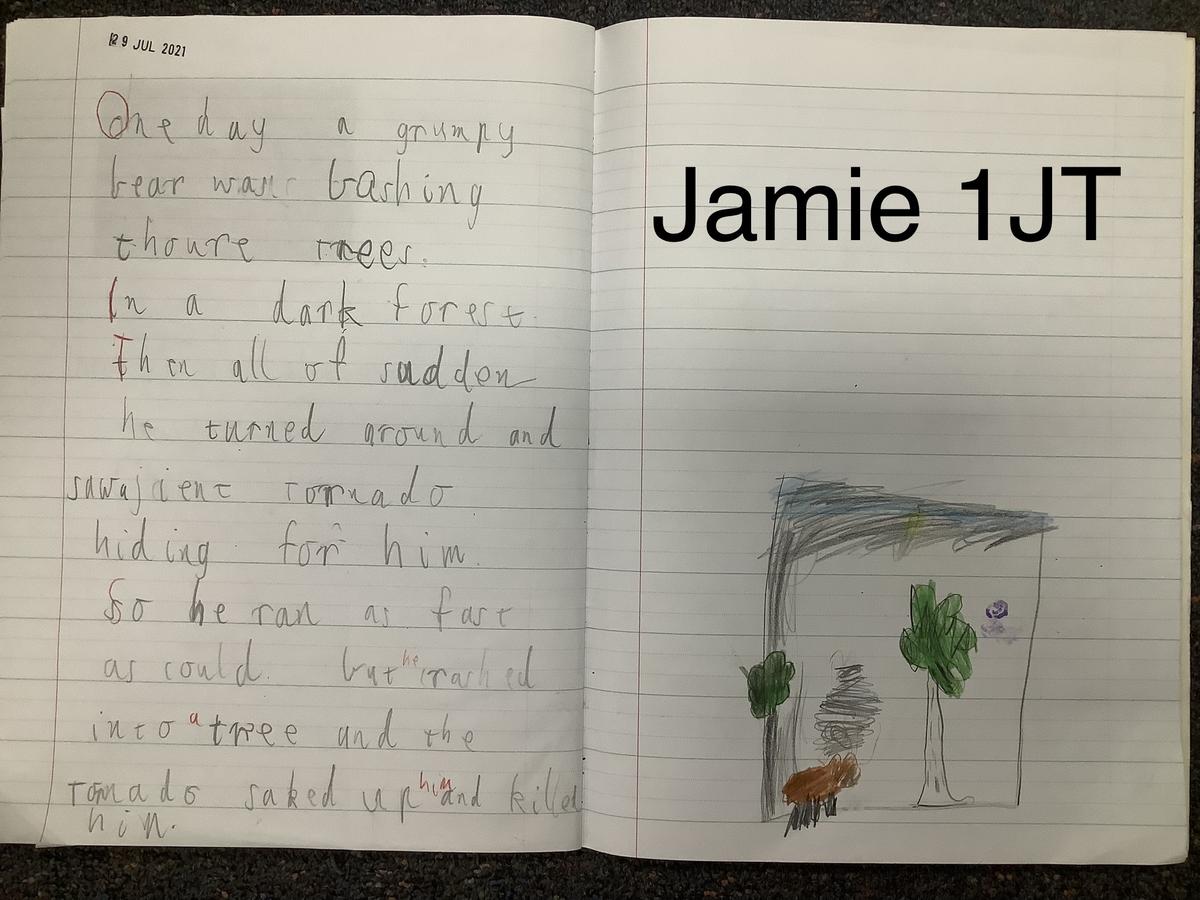 29 JUL 2021
One day a grumpy
bear was bashing
thoure trees.
In a dark forest.
Then all of sadden
he turned around and
saw a jient tornado
hiding for him.
So he ran as fast
as could. but he crashed
into a tree and the
tornado saked up him and killed
him.
Jamie 1JT